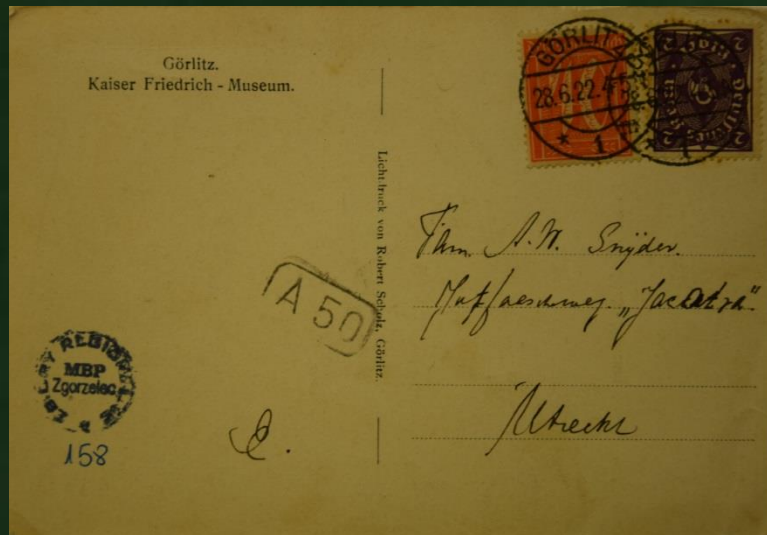 Görlitz.
Kaiser Friedrich - Museum.
GÖRLITZ
28.6.22.4
* 1
Deutsches Reich
2
2
Lichtdruck von Robert Scholz, Görlitz.
A. W. Snijder.
"Jacatra"
Utrecht
A 50
ZBIORY REGIONALNE
MBP
Zgorzelec
158
C.